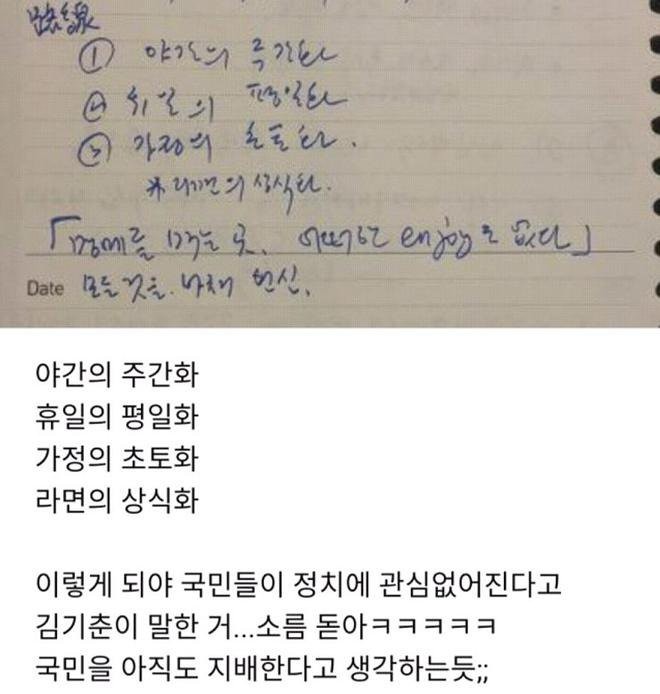 路線
① 야간의 주간화
② 휴일의 평일화
③ 가정의 초토화.
* 라면의 상식화.
「명예를 먹는 곳. 어떠한 enjoy도 없다」
Date 모든 것을. 바쳐 헌신.
야간의 주간화
휴일의 평일화
가정의 초토화
라면의 상식화
이렇게 되야 국민들이 정치에 관심없어진다고
김기춘이 말한 거...소름 돋아ㅋㅋㅋㅋㅋ
국민을 아직도 지배한다고 생각하는듯;;